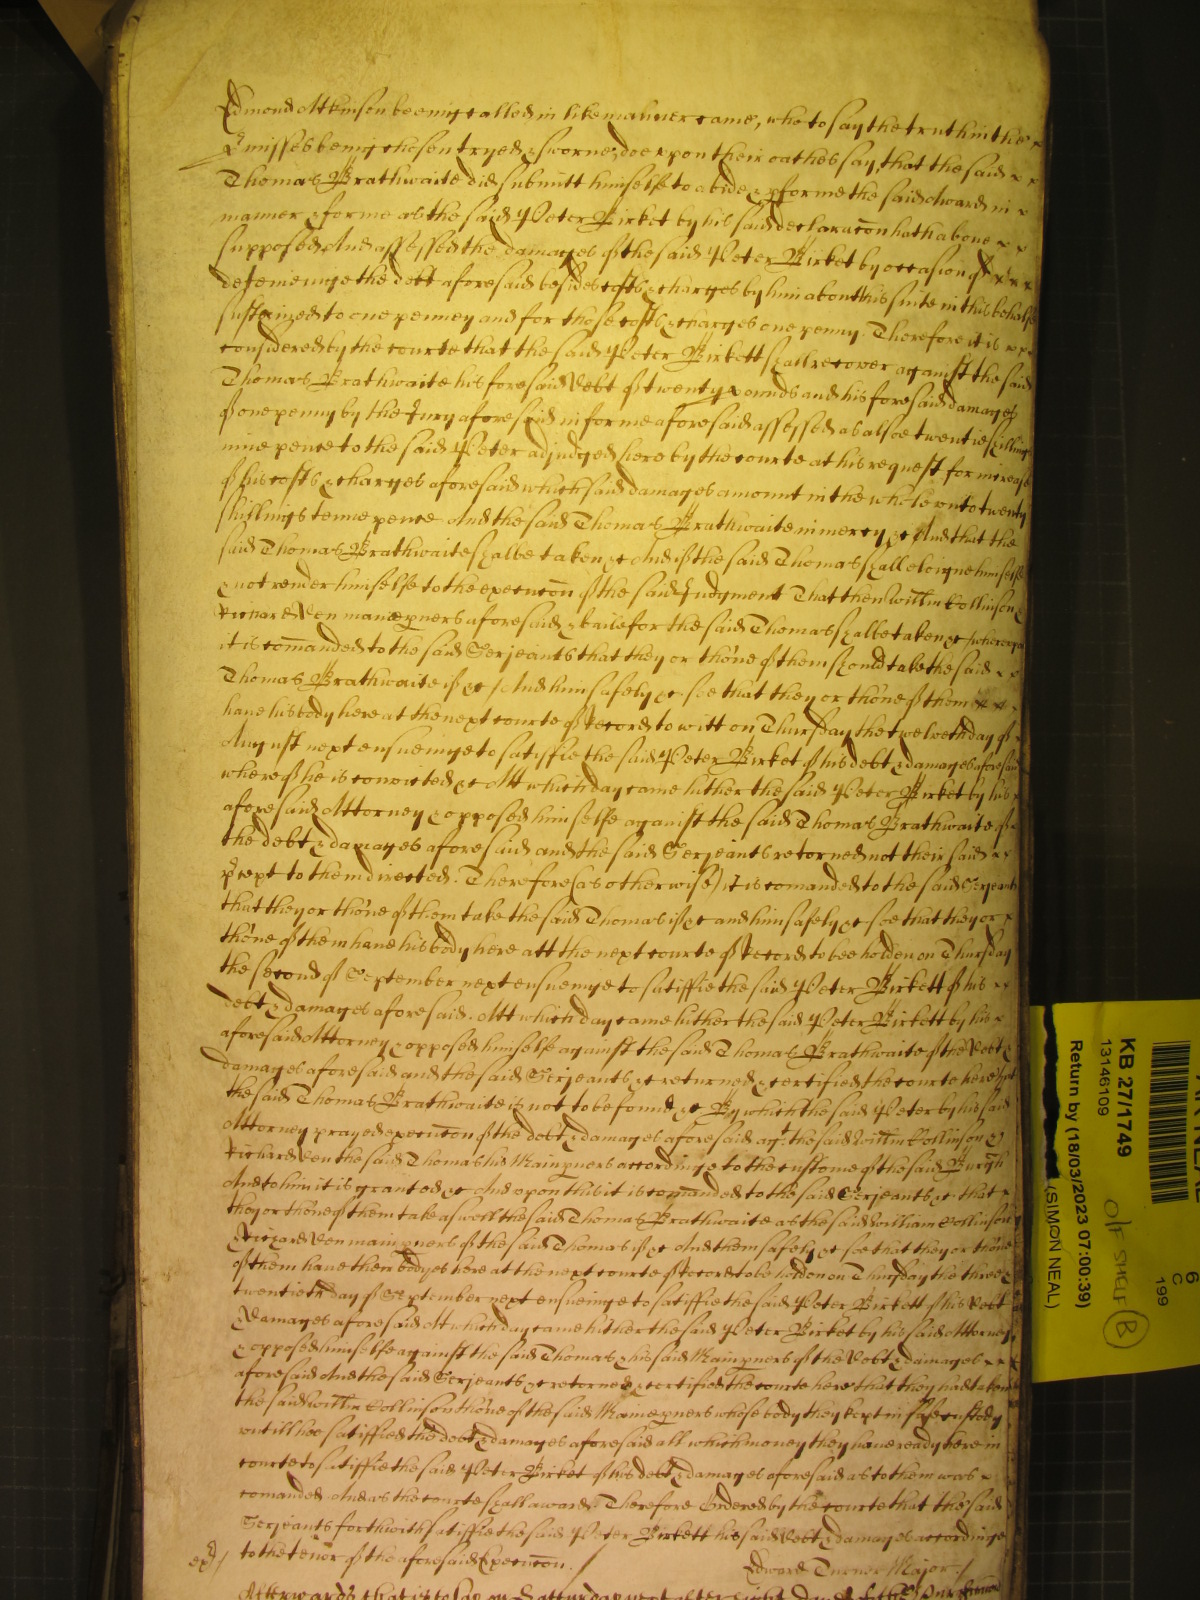 Edmond Atkinson beeing called in like manner came, who to say the truth in the
p'misses being chosen tryed & sworne, doe upon their oathes say, that the said
Thomas Brathwaite did submitt himselfe to abide & p'forme the said Award in
manner & forme as the said Peter Birket by his said declaracon hath above
supposed And assessed the damages of the said Peter Birket by occasion of
deteineinge the debt aforesaid besides costs & charges by him about his suite in this behalfe
susteined to one penney and for those costs & charges one penny. Therefore it is
considered by the courte that the said Peter Birkett shall recover against the said
Thomas Brathwaite his foresaid Debt of twenty pounds and his foresaid damages
of one penny by the Jury aforesaid in forme aforesaid assessed as alsoe twentie shillings
nine pence to the said Peter adjudged here by the courte at his request for increase
of his costs & charges aforesaid which said damages amount in the whole unto twenty
shillings tenne pence And the said Thomas Brathwaite in mercy &c And that the
said Thomas Brathwaite shalbe taken &c And if the said Thomas shall eloigne himselfe
& not render himselfe to the execucon of the said Judgment That then Willm Collinson &
Richard Ven manep'ners aforesaid & baile for the said Thomas shalbe taken &c / whereupon
it is comanded to the said Serjeants that they or thone of them should take the said
Thomas Brathwaite if &c / And him safely &c soe that they or thone of them
have his body here at the next courte of Record to witt on Thursday the twelveth day of
August next ensueinge to satisfie the said Peter Birket of his debt & damages aforesaid
whereof he is convicted &c Att which day came hither the said Peter Birket by his
aforesaid Attorney & opposed himselfe against the said Thomas Brathwaite of
the debt & damages aforesaid and the said Serjeants retorned not their said
p'cept to them directed. Therefore (as otherwise) it is comanded to the said Serjeants
that they or thone of them take the said Thomas if &c and him safely &c soe that they or
thone of them have his body here att the next courte of Record to bee holden on Thursday
the second of September next ensueinge to satisfie the said Peter Birkett of his
debt & damages aforesaid. Att which day came hither the said Peter Birkett by his
aforesaid Attorney & opposed himselfe against the said Thomas Brathwaite of the Debt &
damages aforesaid and the said Serjeants &c returned & certified the courte here that
the said Thomas Brathwaite is not to be found &c By which the said Peter by his said
Attorney prayed execucon of the debt & damages aforesaid agt the said Willm Collinson &
Richard Ven the said Thomas his Mainp'ners accordinge to the custome of the said Burgh
And to him it is granted &c And upon this it is comanded to the said Serjeants &c that
they or thone of them take as well the said Thomas Brathwaite as the said William Collinson
& Richard Ven mainp'ners of the said Thomas if &c And them safely &c soe that they or thone
of them have their bodyes here at the next courte of Record to be holden on Thursday the three &
twentieth day of September next ensueinge to satisfie the said Peter Birkett of his Debt
& Damages aforesaid At which day came hither the said Peter Birket by his said Attorney
& opposed himselfe against the said Thomas & his said Mainp'ners of the Debt & damages
aforesaid And the said Serjeants &c retorned & certified the courte here that they had taken
the said Willm Collinson thone of the said Mainep'ners whose body they kept in safe custody
untill hee satisfied the debt & damages aforesaid all which money they have ready here in
courte to satisfie the said Peter Birket of his debt & damages aforesaid as to them was
comanded. And as the courte shall award. Therefore Ordered by the courte that the said
Serjeants forthwith satisfie the said Peter Birkett his said Debt & damages accordinge
to the tenor of the aforesaid Execucon. /
exd /
Edward Turner Major. /
Afterwards that is to say on
KB 27/1749
13146109
Return by (18/03/2023 07:00:39)
(SIMON NEAL)
O/F SHELF B
6
C
199